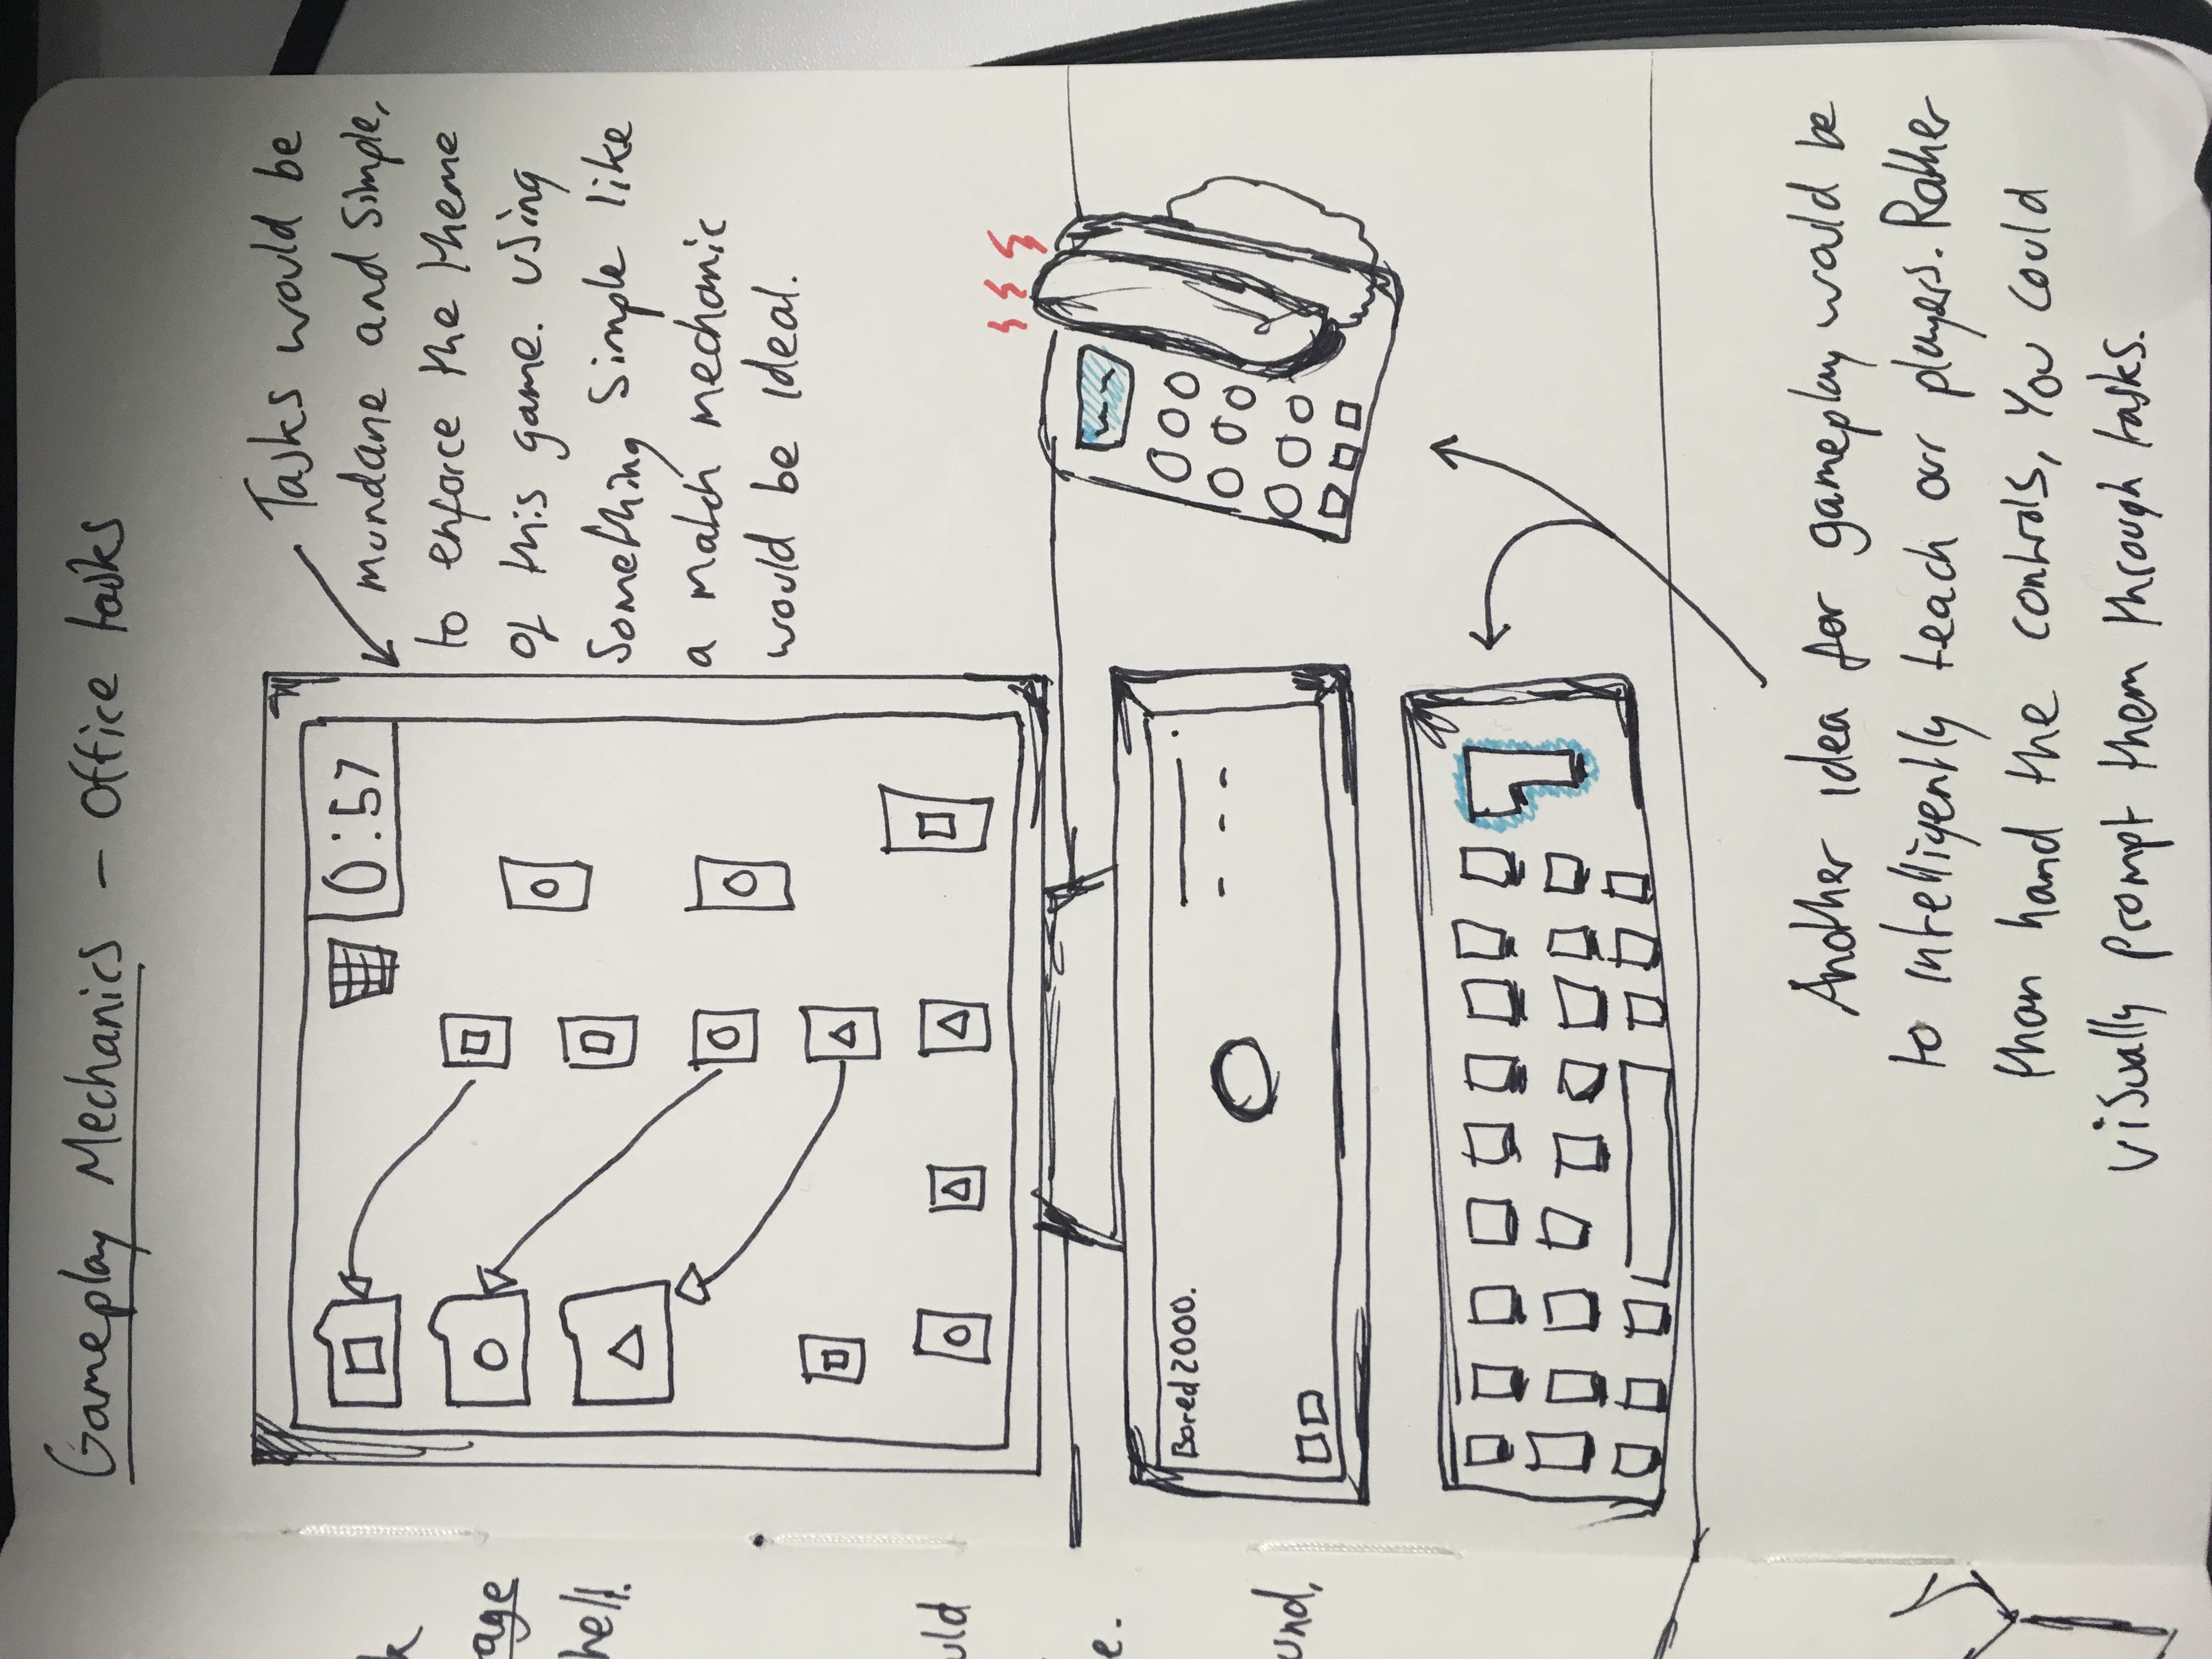 Gameplay Mechanics - Office tasks
0:57
Tasks would be
mundane and Simple,
to enforce the theme
of this game. Using
Something Simple like
a match mechanic
would be Ideal.
Bored 2000.
Another idea for gameplay would be
to intelligently teach our players. Rather
than hand the controls, You could
visually prompt them through tasks.
age
hell.
uld
e.
und,